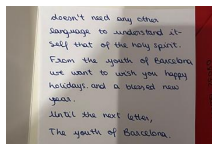 doesn't need any other
language to understand it-
self that of the holy spirit.
From the youth of Barcelona
we want to wish you happy
holidays and a blessed new
year.
Until the next letter,
The youth of Barcelona.